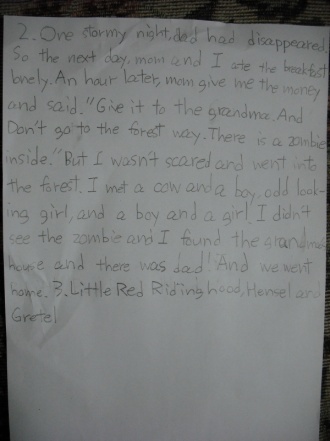 2. One stormy night, dad had disappeared
So the next day, mom and I ate the breakfast
lonely. An hour later, mom give me the money
and said. "Give it to the grandma. And
Don't go to the forest way. There is a zombie
inside." But I wasn't scared and went into
the forest. I met a cow and a boy, odd look-
ing girl, and a boy and a girl. I didn't
see the zombie and I found the grandma
house and there was dad! And we went
home. 3. Little Red Riding hood, Hensel and
Gretel